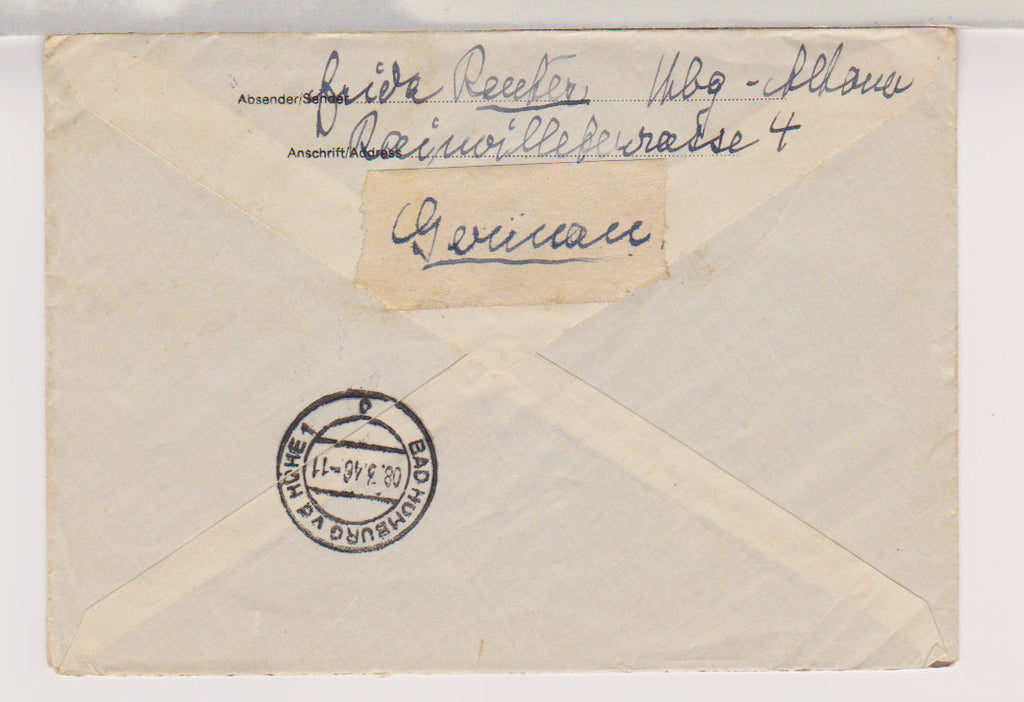 Absender/Sender Frida Reuter Hbg - Altona
Anschrift/Address Rainvilleterrasse 4
German
BAD HOMBURG v d HÖHE 1
08.3.46-11